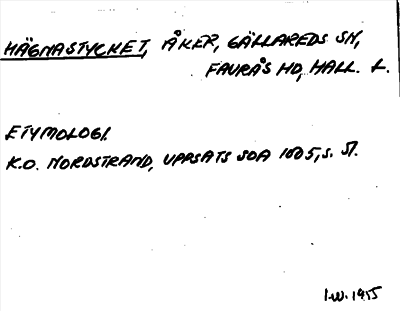 HÄGNASTYCKET, ÅKER, GÄLLAREDS SN,
FAURÅS HD, HALL. L.
ETYMOLOGI.
K.O. NORDSTRAND, UPPSATS SOA 1005, S. 51.
I.W. 1955